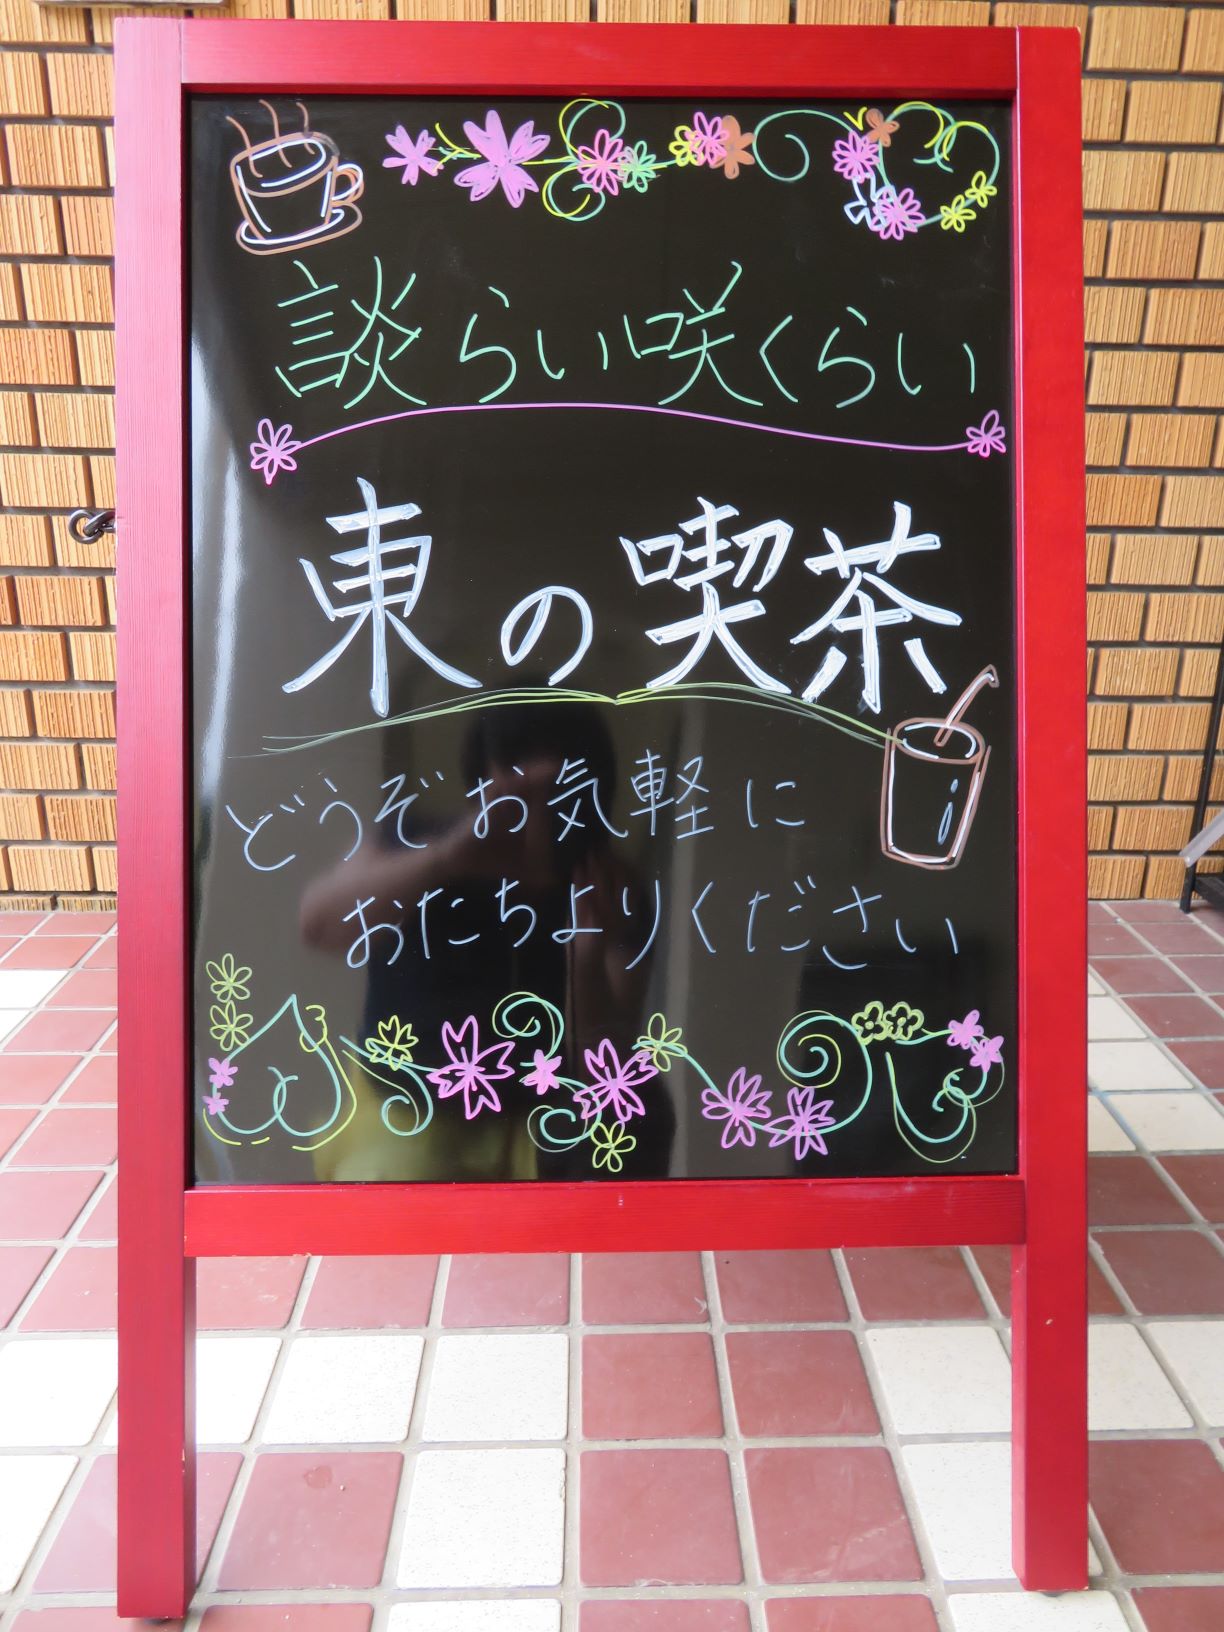 談らい咲くらい
東の喫茶
どうぞお気軽に
おたちよりください